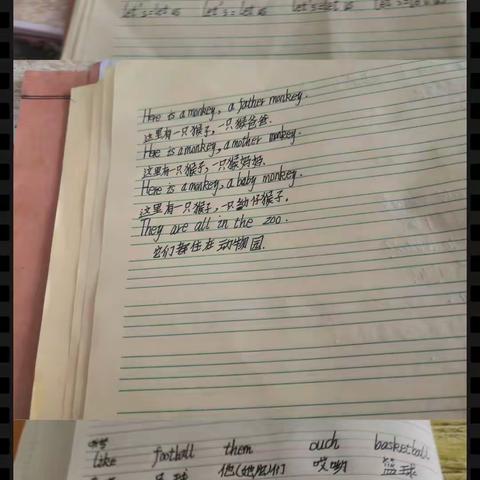 let's=let us let's=let us let's=let us let's=let us
Here is a monkey, a father monkey.
这里有一只猴子,一只猴爸爸.
Here is a monkey, a mother monkey.
这里有一只猴子,一只猴妈妈.
Here is a monkey, a baby monkey.
这里有一只猴子,一只幼仔猴子.
They are all in the zoo.
它们都住在动物园.
like football them ouch basketball
足球 他(她/它)们 哎呦 篮球